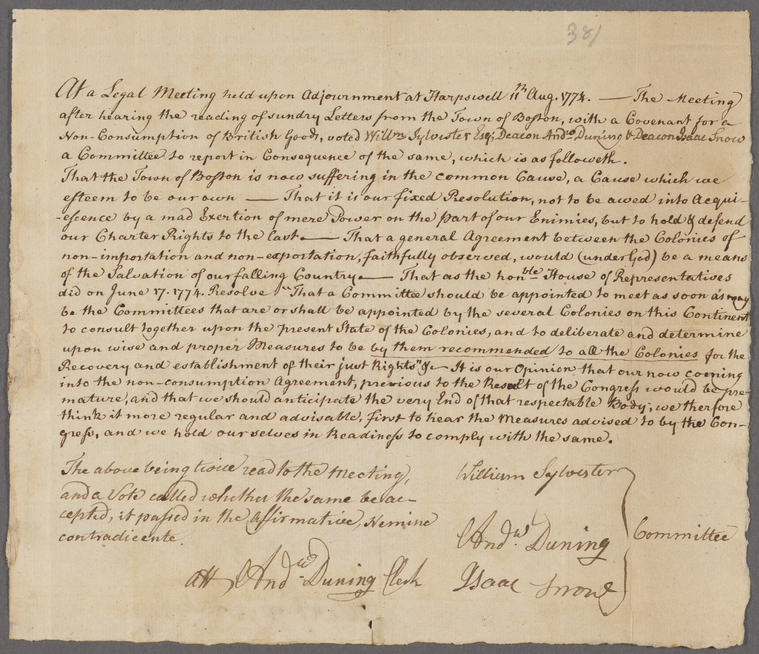 381
At a Legal Meeting held upon Adjournment at Harpswell 11th Aug. 1774. — The Meeting
after hearing the reading of sundry Letters from the Town of Boston, with a Covenant for a
Non-Consumption of British Goods, voted Willm Sylvester Esq; Deacon Andw Duning & Deacon Isaac Snow
a Committee to report in Consequence of the same, which is as followeth.
That the Town of Boston is now suffering in the common Cause, a Cause which we
esteem to be our own — That it is our fixed Resolution, not to be awed into Acqui-
-escence by a mad Exertion of mere Power on the Part of our Enimies, but to hold & defend
our Charter Rights to the last — That a general Agreement between the Colonies of
non-importation and non-exportation, faithfully observed, would (under God) be a means
of the Salvation of our falling Country — That as the honble House of Representatives
did on June 17. 1774. Resolve "That a Committee should be appointed to meet as soon as may
be the Committees that are or shall be appointed by the several Colonies on this Continent
to consult together upon the present State of the Colonies, and to deliberate and determine
upon wise and proper Measures to be by them recommended to all the Colonies for the
Recovery and establishment of their just Rights" &c — It is our Opinion that our now coming
into the non-consumption Agreement, previous to the Result of the Congress would be pre-
mature; and that we should anticipate the very End of that respectable Body; we therefore
think it more regular and advisable, first to hear the Measures advised to by the Con-
gress, and we hold ourselves in Readiness to comply with the same.
The above being twice read to the Meeting,
and a Vote called whether the same be ac-
cepted, it passed in the affirmative, Nemine
contradicente.
att Andw Duning Clerk
William Sylvester
Andw Duning
Isaac Snow
Committee